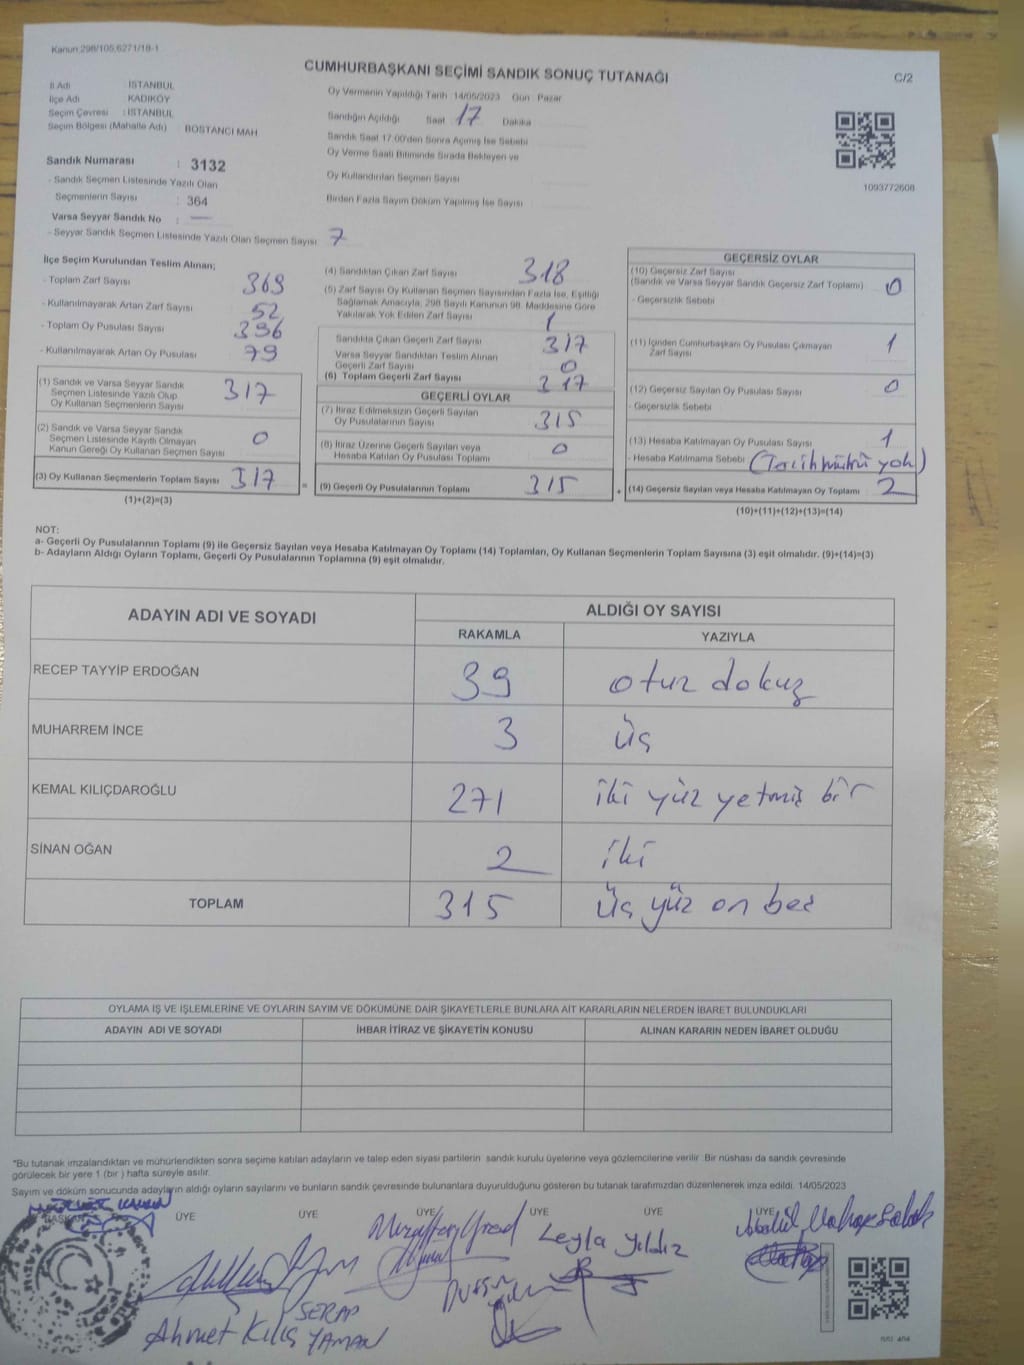 Kanun:298/105,6271/18-1
CUMHURBAŞKANI SEÇİMİ SANDIK SONUÇ TUTANAĞI
C/2
İl Adı İSTANBUL
İlçe Adı KADIKÖY
Seçim Çevresi : İSTANBUL
Seçim Bölgesi (Mahalle Adı) : BOSTANCI MAH
Sandık Numarası : 3132
- Sandık Seçmen Listesinde Yazılı Olan
Seçmenlerin Sayısı : 364
Varsa Seyyar Sandık No : —
- Seyyar Sandık Seçmen Listesinde Yazılı Olan Seçmen Sayısı: 7
Oy Vermenin Yapıldığı Tarih : 14/05/2023 Gün : Pazar
Sandığın Açıldığı Saat 17 Dakika
Sandık Saat 17:00'den Sonra Açımış İse Sebebi
Oy Verme Saati Bitiminde Sırada Bekleyen ve
Oy Kullandırılan Seçmen Sayısı
Birden Fazla Sayım Döküm Yapılmış İse Sayısı
1093772608
İlçe Seçim Kurulundan Teslim Alınan;
- Toplam Zarf Sayısı 369
- Kullanılmayarak Artan Zarf Sayısı 52
- Toplam Oy Pusulası Sayısı 396
- Kullanılmayarak Artan Oy Pusulası 79
(1) Sandık ve Varsa Seyyar Sandık
Seçmen Listesinde Yazılı Olup
Oy Kullanan Seçmenlerin Sayısı 317
(2) Sandık ve Varsa Seyyar Sandık
Seçmen Listesinde Kayıtlı Olmayan
Kanun Gereği Oy Kullanan Seçmen Sayısı 0
(3) Oy Kullanan Seçmenlerin Toplam Sayısı 317
(1)+(2)=(3)
(4) Sandıktan Çıkan Zarf Sayısı 318
(5) Zarf Sayısı Oy Kullanan Seçmen Sayısından Fazla İse, Eşitliği
Sağlamak Amacıyla, 298 Sayılı Kanunun 98. Maddesine Göre
Yakılarak Yok Edilen Zarf Sayısı 1
Sandıkta Çıkan Geçerli Zarf Sayısı 317
Varsa Seyyar Sandıktan Teslim Alınan
Geçerli Zarf Sayısı 0
(6) Toplam Geçerli Zarf Sayısı 317
GEÇERLİ OYLAR
(7) İtiraz Edilmeksizin Geçerli Sayılan
Oy Pusulalarının Sayısı 315
(8) İtiraz Üzerine Geçerli Sayılan veya
Hesaba Katılan Oy Pusulası Toplamı 0
= (9) Geçerli Oy Pusulalarının Toplamı 315
GEÇERSİZ OYLAR
(10) Geçersiz Zarf Sayısı
(Sandık ve Varsa Seyyar Sandık Geçersiz Zarf Toplamı) 0
- Geçersizlik Sebebi
(11) İçinden Cumhurbaşkanı Oy Pusulası Çıkmayan
Zarf Sayısı 1
(12) Geçersiz Sayılan Oy Pusulası Sayısı 0
- Geçersizlik Sebebi
(13) Hesaba Katılmayan Oy Pusulası Sayısı 1
- Hesaba Katılmama Sebebi (Tercih mührü yok)
+ (14) Geçersiz Sayılan veya Hesaba Katılmayan Oy Toplamı 2
(10)+(11)+(12)+(13)=(14)
NOT:
a- Geçerli Oy Pusulalarının Toplamı (9) ile Geçersiz Sayılan veya Hesaba Katılmayan Oy Toplamı (14) Toplamları, Oy Kullanan Seçmenlerin Toplam Sayısına (3) eşit olmalıdır. (9)+(14)=(3)
b- Adayların Aldığı Oyların Toplamı, Geçerli Oy Pusulalarının Toplamına (9) eşit olmalıdır.
ADAYIN ADI VE SOYADI ALDIĞI OY SAYISI
RAKAMLA YAZIYLA
RECEP TAYYİP ERDOĞAN 39 otuz dokuz
MUHARREM İNCE 3 üç
KEMAL KILIÇDAROĞLU 271 iki yüz yetmiş bir
SİNAN OĞAN 2 iki
TOPLAM 315 üç yüz on beş
OYLAMA İŞ VE İŞLEMLERİNE VE OYLARIN SAYIM VE DÖKÜMÜNE DAİR ŞİKAYETLERLE BUNLARA AİT KARARLARIN NELERDEN İBARET BULUNDUKLARI
ADAYIN ADI VE SOYADI İHBAR İTİRAZ VE ŞİKAYETİN KONUSU ALINAN KARARIN NEDEN İBARET OLDUĞU
*Bu tutanak imzalandıktan ve mühürlendikten sonra seçime katılan adayların ve talep eden siyasi partilerin sandık kurulu üyelerine veya gözlemcilerine verilir. Bir nüshası da sandık çevresinde
görülecek bir yere 1 (bir ) hafta süreyle asılır.
Sayım ve döküm sonucunda adayların aldığı oyların sayılarını ve bunların sandık çevresinde bulunanlara duyurulduğunu gösteren bu tutanak tarafımızdan düzenlenerek imza edildi. 14/05/2023
BAŞKAN ÜYE ÜYE ÜYE ÜYE ÜYE ÜYE
Leyla Yıldız
SERAP
Ahmet Kılıç YAMAN